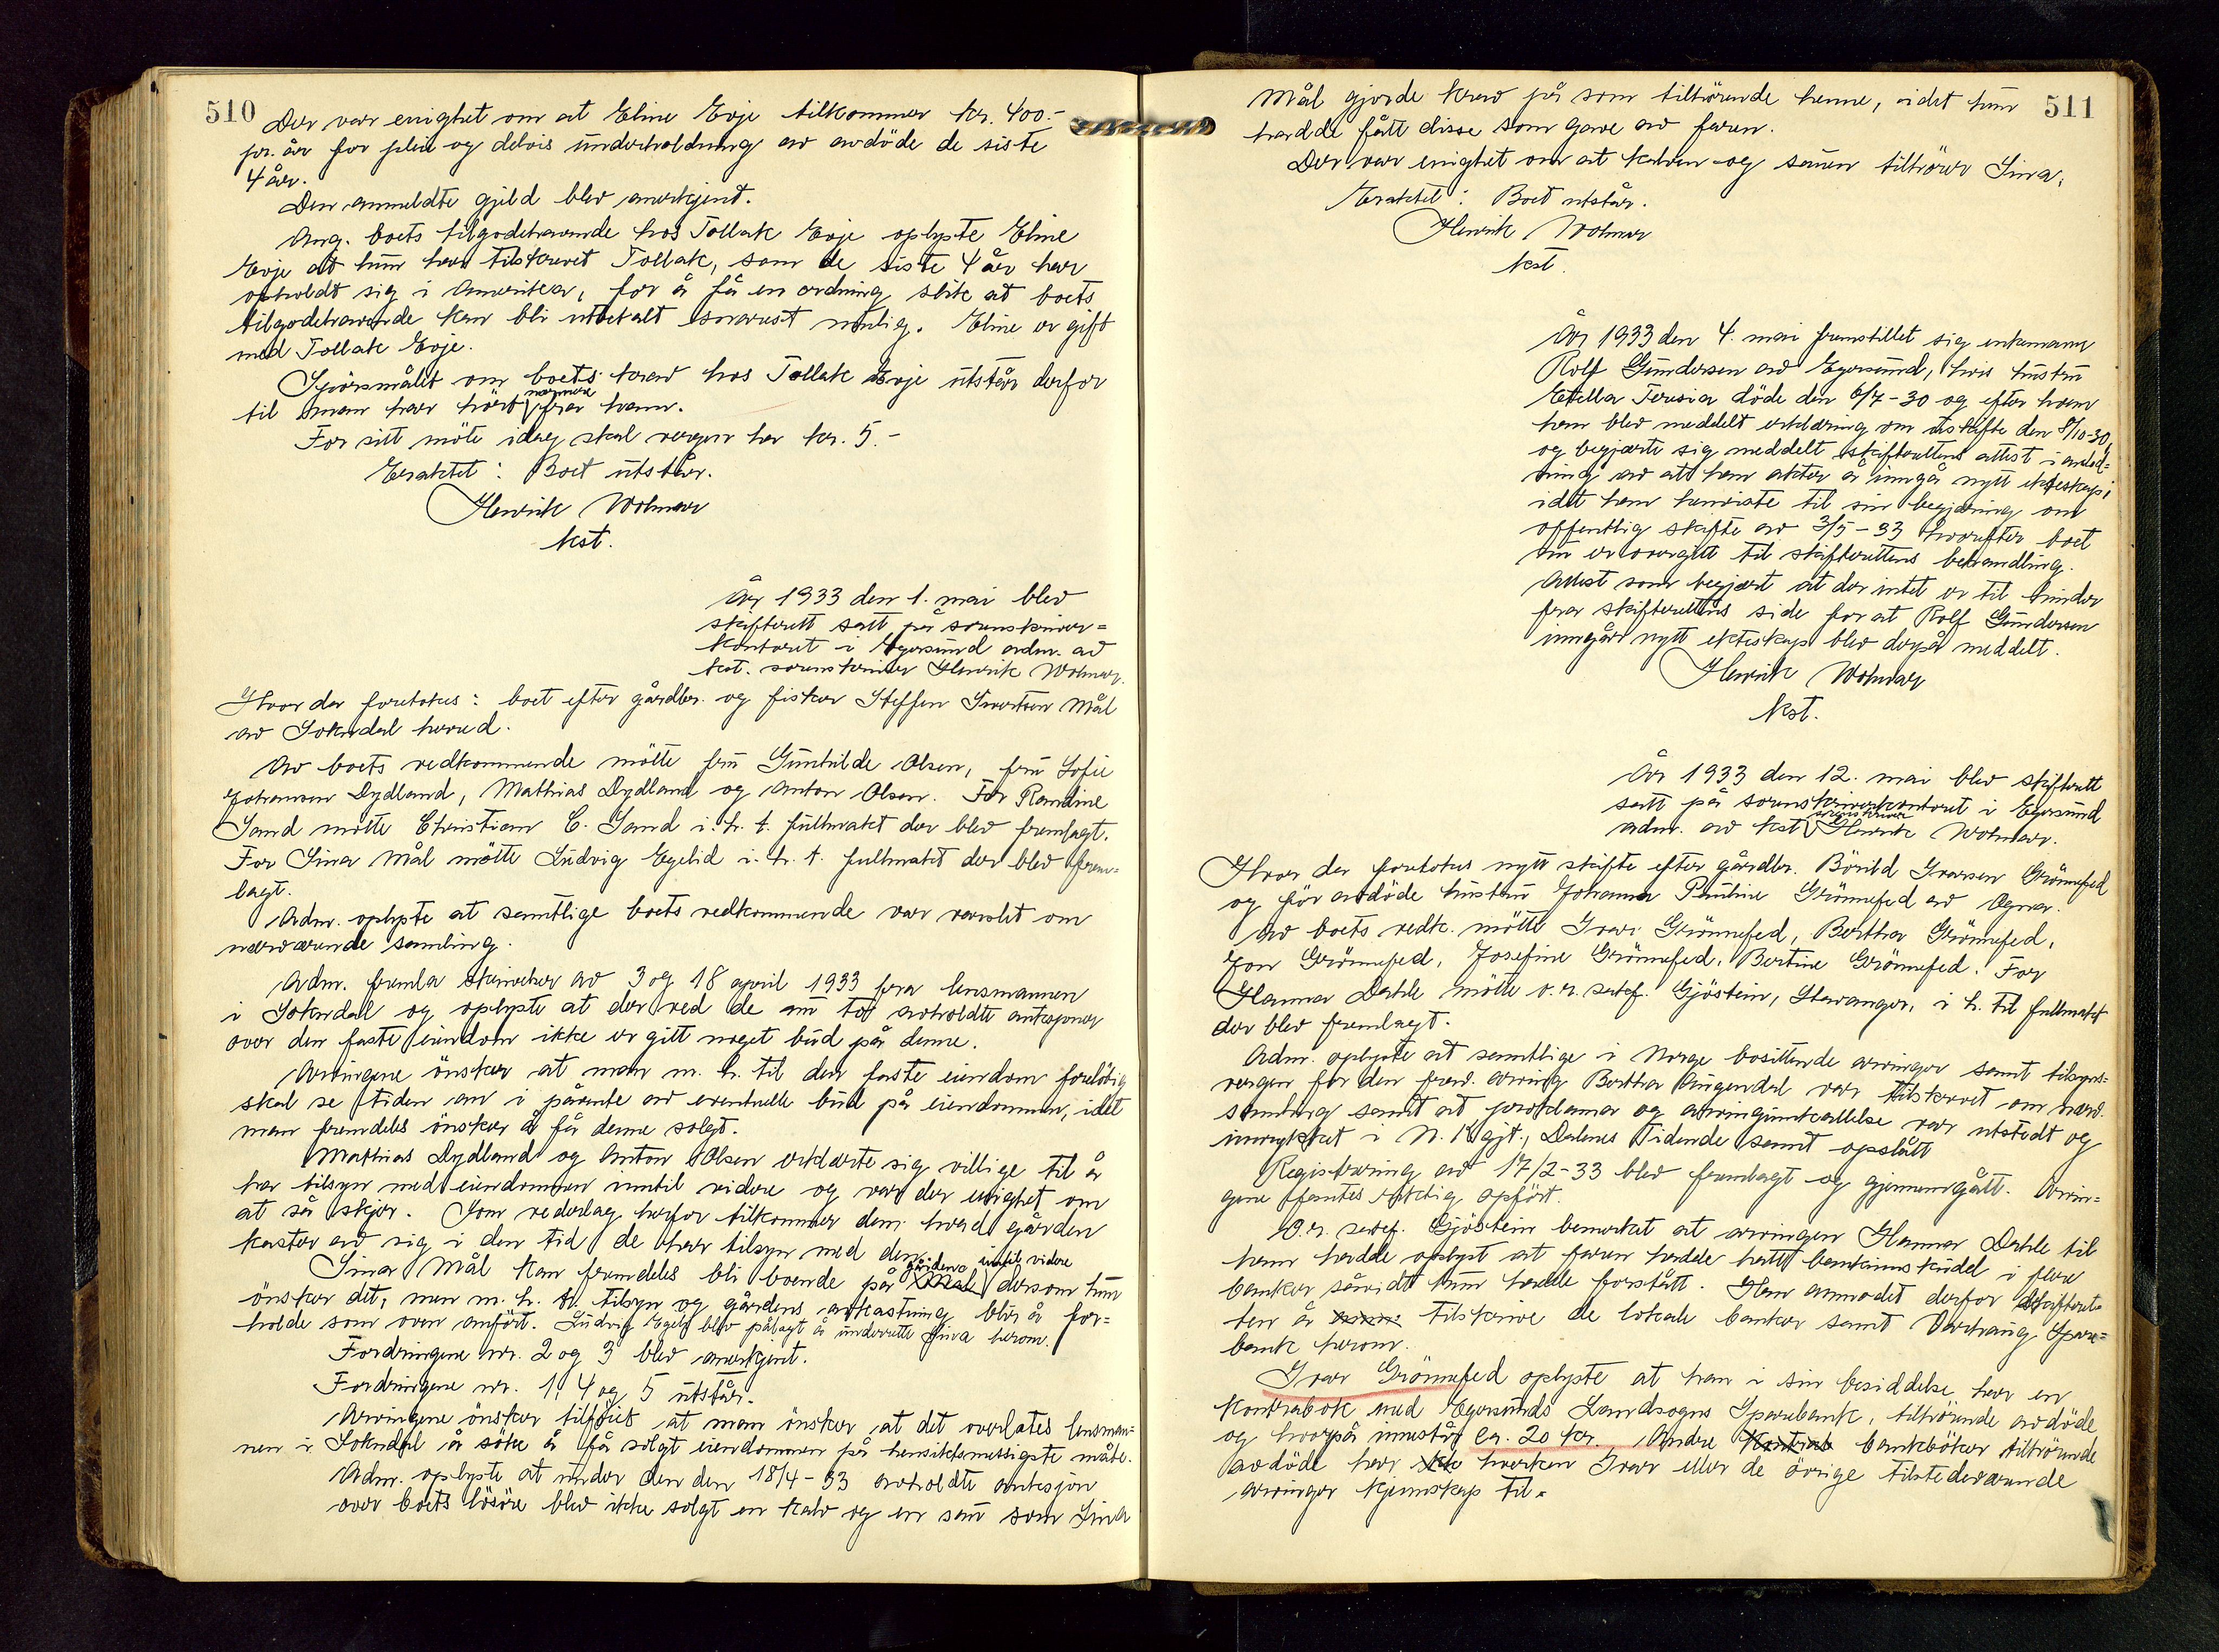 510
Der var enighet om at Eline Evje tilkommer kr. 400.-
pr. år for pleie og delvis underholdning av avdöde de siste
4 år.
Den anmeldte gjeld blev anerkjent.
Ang. boets tilgodehavende hos Tollak Evje oplyste Eline
Evje at hun har tilskrevet Tollak, som de siste 4 år har
opholdt sig i Amerika, for å få en ordning slik at boets
tilgodehavende kan bli utbetalt snarest mulig. Eline er gift
med Tollak Evje.
Spörsmålet om boets krav hos Tollak Evje utstår derfor
til man har hört nærmere fra ham.
For sitt möte idag skal vergen ha kr. 5.-
Eraktet: Boet utstår.
Henrik Wolmar
kst.
År 1933 den 1. mai blev
skifterett satt på sorenskriver=
kontoret i Egersund adm. av
kst. sorenskriver Henrik Wolmar.
Hvor der foretokes: boet efter gårdbr. og fisker Steffen Sivertsen Mål
av Sokndal herred.
Av boets vedkommende mötte fru Gunhilde Olsen, fru Sofie
Johansen Dydland, Mathias Dydland og Anton Olsen. For Randine
Sand mötte Christian C. Sand i. h. t. fullmakt der blev fremlagt.
For Sina Mål mötte Ludvig Egelid i. h. t. fullmakt der blev frem=
lagt.
Adm. oplyste at samtlige boets vedkommende var varslet om
nærværende samling.
Adm. fremla skrivelser av 3 og 18 april 1933 fra lensmannen
i Sokndal og oplyste at der ved de nu to avholdte auksjoner
over den faste eiendom ikke er gitt noget bud på denne.
Arvingene önsker at man m. h. til den faste eiendom forelöbig
skal se tiden an i påvente av eventuelle bud på eiendommen, idet
man fremdeles önsker å få denne solgt.
Mathias Dydland og Anton Olsen erklærte sig villige til å
ha tilsyn med eiendommen inntil videre og var der enighet om
at så skjer. Som vederlag herfor tilkommer dem hvad gården
kaster av sig i den tid de har tilsyn med den.
Sina Mål kan fremdeles bli boende på gården inntil videre dersom hun
önsker det, men m. h. til tilsyn og gårdens avkastning blir å for=
holde som oven anfört. Ludvig Egelid blev pålagt å underrette Sina herom.
Fordringene nr. 2 og 3 blev anerkjent.
Fordringene nr. 1, 4 og 5 utstår.
Arvingene önsker tilföiet at man önsker at det overlates lensman=
nen i Sokndal å söke å få solgt eiendommen på hensiktsmessigste måte.
Adm. oplyste at under den den 18/4-33 avholdte auksjon
over boets lösöre blev ikke solgt en kalv og en sau som Sina
511
Mål gjorde krav på som tilhörende henne, idet hun
hadde fått disse som gave av faren.
Der var enighet om at kalven og sauen tilhörer Sina.
Eraktet: Boet utstår.
Henrik Wolmar
kst.
År 1933 den 4. mai fremstillet sig enkemann
Rolf Gundersen av Egersund, hvis hustru
Etella Teresia döde den 6/7-30 og efter hvem
ham blev meddelt erklæring om uskifte den 8/10-30,
og begjærte sig meddelt skifterettens attest i anled=
ning av at han akter å inngå nytt ekteskap,
idet han henviste til sin begjæring om
offentlig skifte av 3/5-33 hvorefter boet
nu er overgitt til skifterettens behandling.
Attest som begjært at der intet er til hinder
fra skifterettens side for at Rolf Gundersen
inngår nytt ekteskap blev derpå meddelt.
Henrik Wolmar
kst.
År 1933 den 12. mai blev skifterett
satt på sorenskriverkontoret i Egersund
adm. av kst. sorenskriver Henrik Wolmar.
Hvor der foretokes nytt skifte efter gårdbr. Börild Ivarsen Grönnefed
og för avdöde hustru Johanna Pauline Grönnefed av Ogna.
Av boets vedk. mötte Ivar Grönnefed, Bertha Grönnefed,
Jon Grönnefed, Josefine Grönnefed, Bertine Grönnefed. For
Hanna Dahle mötte o. r. sakf. Gjöstein, Stavanger, i h. til fullmakt
der blev fremlagt.
Adm. oplyste at samtlige i Norge bosittende arvinger samt tilsyns=
vergen for den fravær. arving Bertha Augendal var tilskrevet om nærv.
samling samt at proklama og arvingeinnkallelse var utstedt og
innrykket i N. Kgjt., Dalenes Tidende samt opslått
Registrering av 17/2-33 blev fremlagt og gjennemgått. Arvin=
gene fantes riktig opfört.
O. r. sakf. Gjöstein bemerket at arvingen Hanna Dahle til
ham hadde oplyst at faren hadde hatt bankinnskudd i flere
banker såvidt hun hadde forstått. Han anmodet derfor skifteret=
ten å tilskrive de lokale banker samt Varhaug Spare=
bank herom.
Ivar Grönnefed oplyste at han i sin besiddelse har en
kontrabok med Egersunds Landsogns Sparebank, tilhörende avdöde,
og hvorpå innestår ca. 20 kr. Andre bankböker tilhörende
avdöde har hverken Ivar eller de övrige tilstedeværende
arvinger kjennskap til.